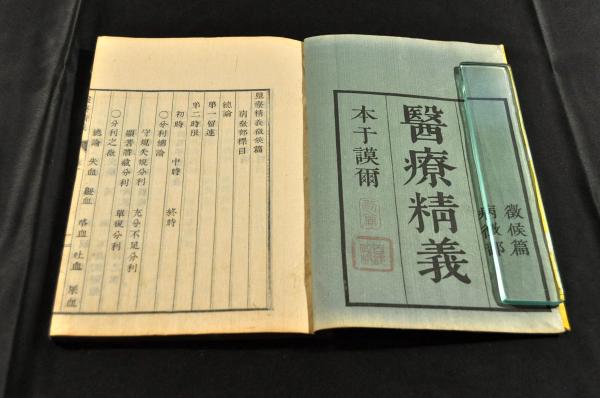 徵候篇
病徵部
醫療精義
本于謨爾
醫療精義徵候篇
病徵部標目
總論
第一留連
第二時限
初時 中時 終時
〇分利總論
守規失規分利 充分不足分利
分利 單複分利
〇分利之
總論 失血 衂血 咯血 吐血 尿血